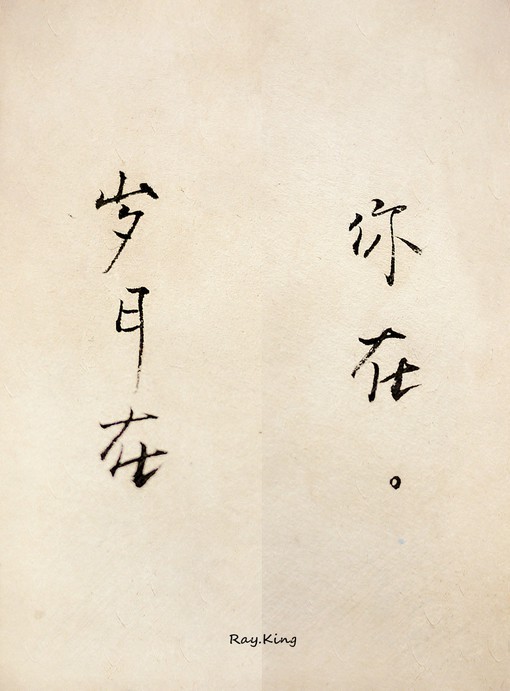 岁月在
你在。
Ray.King